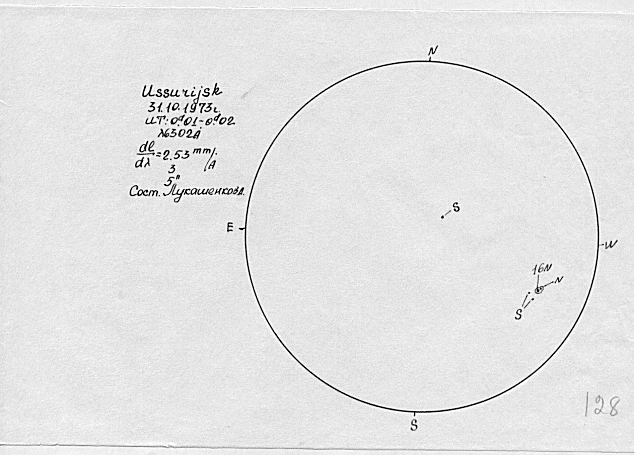 N
Ussurijsk
31.10.1973г.
UT: 0ᵈ.01-0ᵈ.02
λ6302Å
dl/dλ = 2.53 mm/Å
3
5"
Сост. Лукашенкова.
S
E
W
16N
N
S
128
S